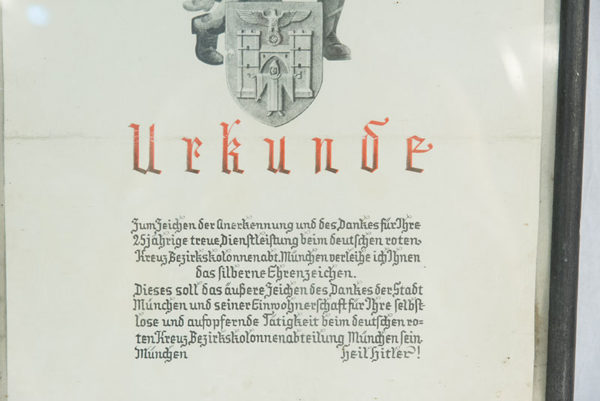 Urkunde
Zum Zeichen der Anerkennung und des Dankes für Ihre
25jährige treue Dienstleistung beim deutschen roten
Kreuz, Bezirkskolonnenabt. München verleihe ich Ihnen
das silberne Ehrenzeichen.
Dieses soll das äußere Zeichen des Dankes der Stadt
München und seiner Einwohnerschaft für Ihre selbst-
lose und aufopfernde Tätigkeit beim deutschen ro=
ten Kreuz, Bezirkskolonnenabteilung München sein.
München Heil Hitler!